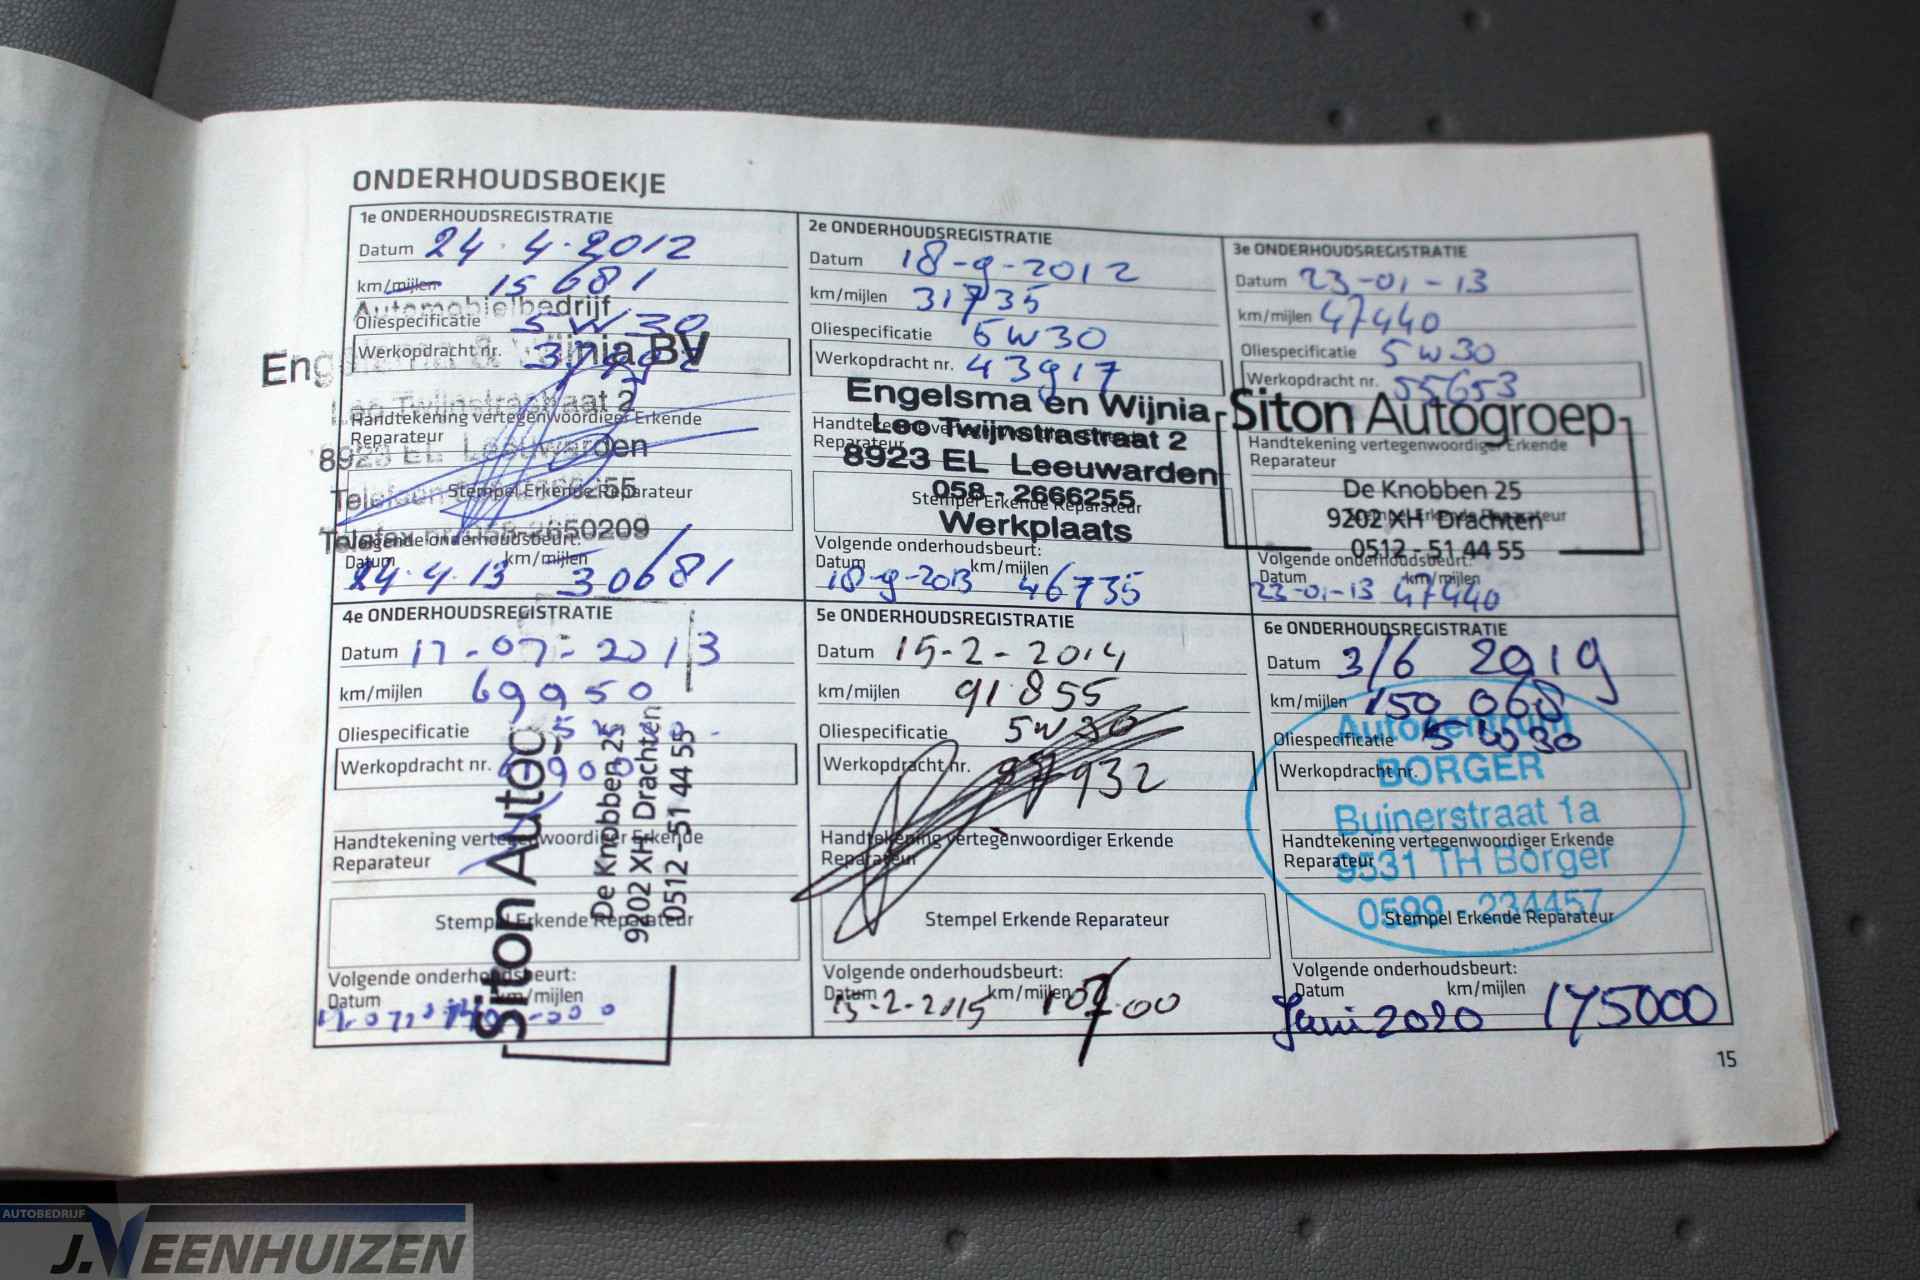 ONDERHOUDSBOEKJE
1e ONDERHOUDSREGISTRATIE
Datum 24·4·2012
km/mijlen 15 681
Automobielbedrijf
Oliespecificatie 5 W 30
Engelsma & Wijnia BV
Werkopdracht nr.
Leo Twijnstrastraat 2
Handtekening vertegenwoordiger Erkende
Reparateur
8923 EL Leeuwarden
Stempel Erkende Reparateur
Volgende onderhoudsbeurt:
Datum km/mijlen
24·4·13 30681
2e ONDERHOUDSREGISTRATIE
Datum 18-9-2012
km/mijlen 31735
Oliespecificatie 5w30
Werkopdracht nr. 43917
Engelsma en Wijnia
Handtekening vertegenwoordiger Erkende
Leo Twijnstrastraat 2
Reparateur
8923 EL Leeuwarden
058 - 2666255
Stempel Erkende Reparateur
Werkplaats
Volgende onderhoudsbeurt:
Datum km/mijlen
18-9-2013 46735
3e ONDERHOUDSREGISTRATIE
Datum 23-01-13
km/mijlen 47440
Oliespecificatie 5w30
Werkopdracht nr. 55653
Siton Autogroep
Handtekening vertegenwoordiger Erkende
Reparateur
De Knobben 25
9202 XH Drachten
Stempel Erkende Reparateur
0512 - 51 44 55
Volgende onderhoudsbeurt:
Datum km/mijlen
23-01-13 47440
4e ONDERHOUDSREGISTRATIE
Datum 17-07-2013
km/mijlen 69950
Oliespecificatie
Werkopdracht nr.
Handtekening vertegenwoordiger Erkende
Reparateur
Stempel Erkende Reparateur
Siton Autog
De Knobben 25
9202 XH Drachten
0512 - 51 44 55
Volgende onderhoudsbeurt:
Datum km/mijlen
5e ONDERHOUDSREGISTRATIE
Datum 15-2-2014
km/mijlen 91.855
Oliespecificatie 5w30
Werkopdracht nr.
Handtekening vertegenwoordiger Erkende
Reparateur
Stempel Erkende Reparateur
Volgende onderhoudsbeurt:
Datum km/mijlen
15-2-2015
6e ONDERHOUDSREGISTRATIE
Datum 3/6 2019
km/mijlen 150 068
Autocentrum
Oliespecificatie 5 W30
BORGER
Werkopdracht nr.
Buinerstraat 1a
Handtekening vertegenwoordiger Erkende
Reparateur
9531 TH Borger
0599 - 234457
Stempel Erkende Reparateur
Volgende onderhoudsbeurt:
Datum km/mijlen
Juni 2020 175000
15
AUTOBEDRIJF
J.VEENHUIZEN